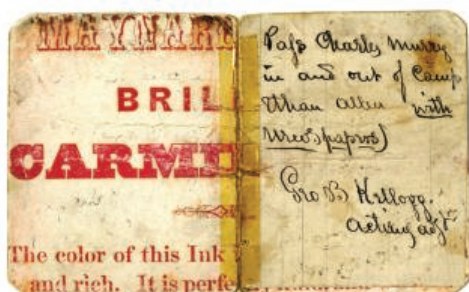 MAYNAR
BRILL
CARMI
The color of this Ink
and rich. It is perfe
Pass Charley Murry
in and out of Camp
Ethan Allen with
Newspapers)
Geo B Kellogg.
acting adjt